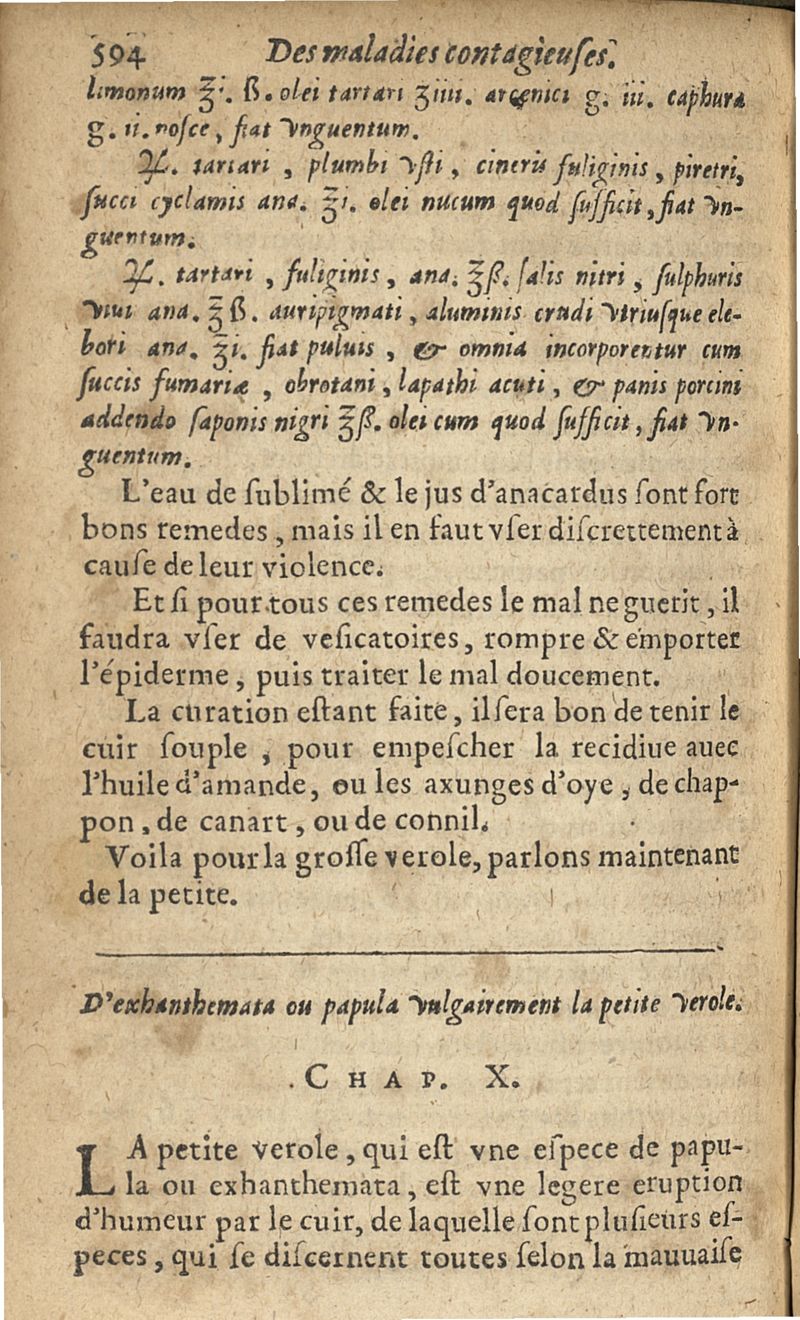 594 Des maladies contagieuses.
limonum ℥i. ß. olei tartari ʒiiii. arcenici g. iii. caphura
g. ii. nosce, fiat vnguentum.
℞. tartari, plumbi vsti, cineris fuliginis, piretri,
succi cyclamis ana. ℥i. olei nucum quod sufficit, fiat vn-
guentum.
℞. tartari, fuliginis, ana. ℥ß. salis nitri, sulphuris
viui ana. ℥ß. auripigmati, aluminis crudi vtriusque ele-
bori ana. ℥i. fiat puluis, & omnia incorporentur cum
succis fumariæ, obrotani, lapathi acuti, & panis porcini
addendo saponis nigri ℥ß. olei cum quod sufficit, fiat vn-
guentum.
L'eau de sublimé & le jus d'anacardus sont fort
bons remedes, mais il en faut vser discrettement à
cause de leur violence.
Et si pour tous ces remedes le mal ne guerit, il
faudra vser de vesicatoires, rompre & emporter
l'épiderme, puis traiter le mal doucement.
La curation estant faite, il sera bon de tenir le
cuir souple, pour empescher la recidiue auec
l'huile d'amande, ou les axunges d'oye, de chap-
pon, de canart, ou de connil.
Voila pour la grosse verole, parlons maintenant
de la petite.
D'exhanthemata ou papula vulgairement la petite verole.
CHAP. X.
LA petite verole, qui est vne espece de papu-
la ou exhanthemata, est vne legere eruption
d'humeur par le cuir, de laquelle sont plusieurs es-
peces, qui se discernent toutes selon la mauuaise